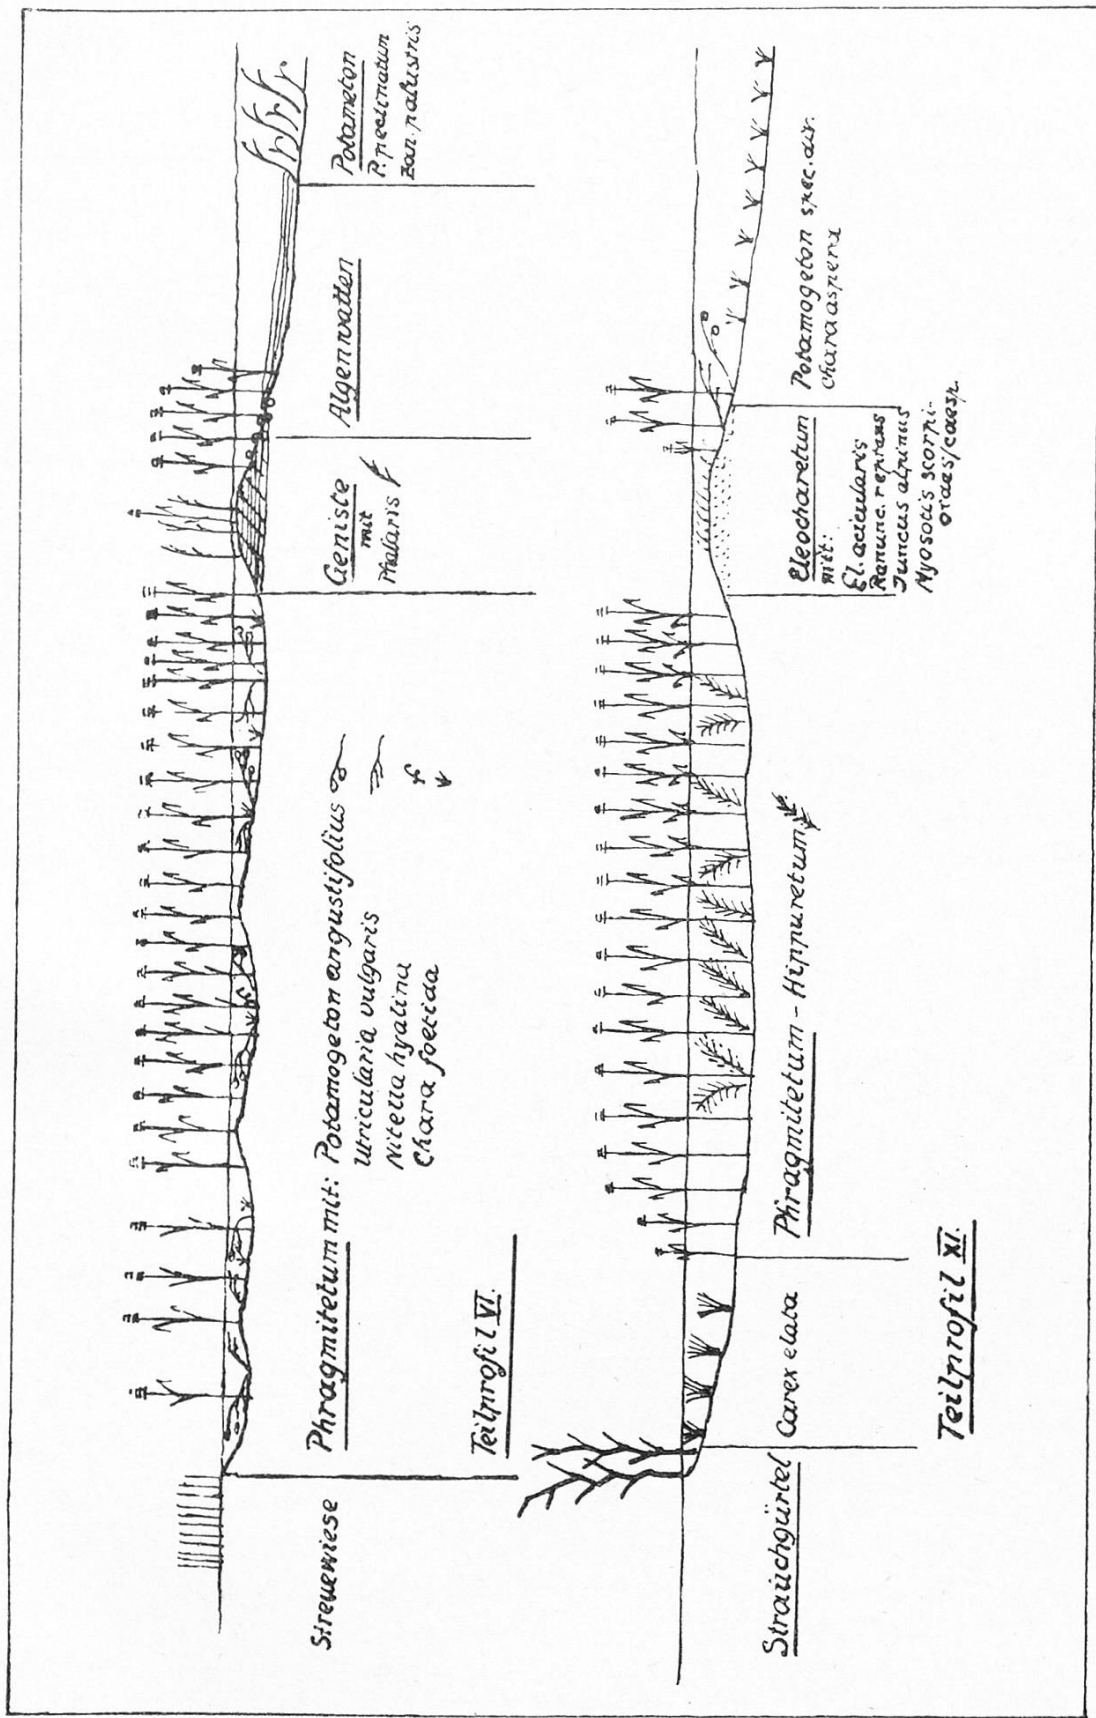 Streuewiese
Phragmitetum mit: Potamogeton angustifolius
Utricularia vulgaris
Nitella hyalina
Chara foetida
Geniste
mit
Phalaris
Algenwatten
Potameton
P. pectinatum
Zan. palustris
Teilprofil VI.
Strauchgürtel
Carex elata
Phragmitetum - Hippuretum
Eleocharetum
mit:
El. acicularis
Ranunc. reptans
Juncus alpinus
Myosotis scorpi-
oides/caesp.
Potamogeton spec. div.
Chara aspera
Teilprofil XI.